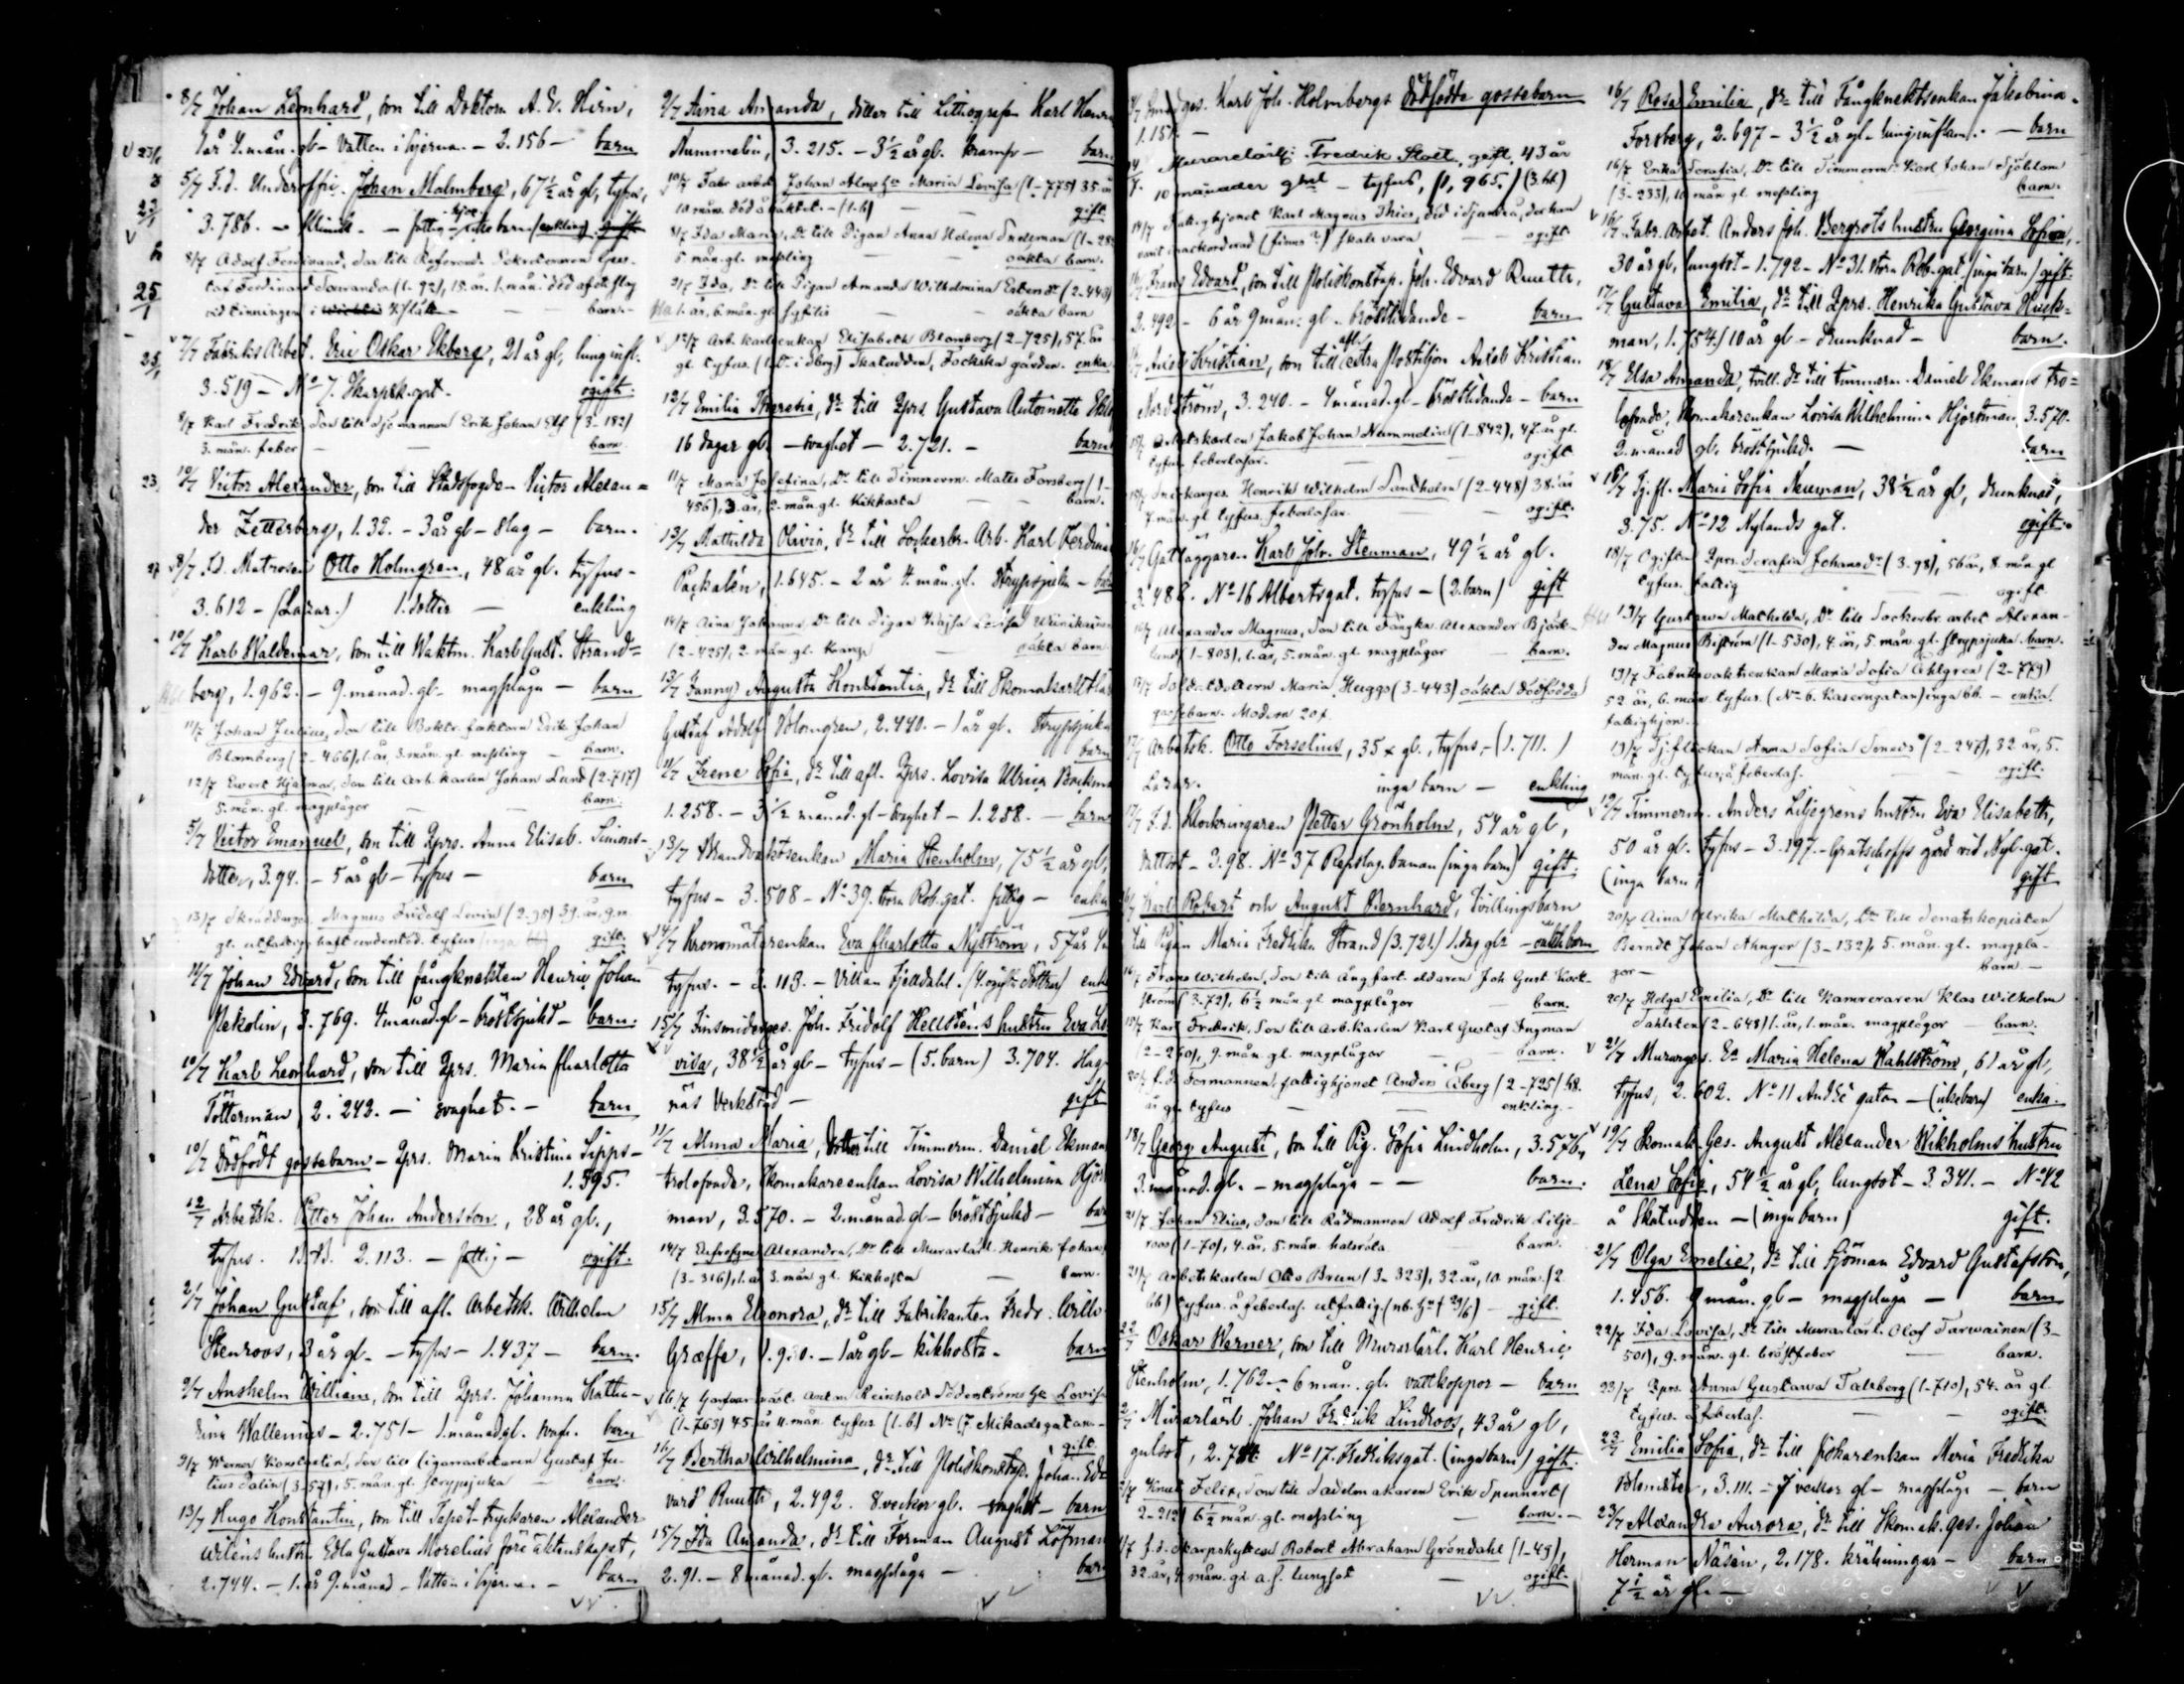 8/7 Johan Leonhard, son till Doktorn A. E. Hirn,
1 år 4. mån. gl - Vatten i hjernan - 2.156 - barn
5/7 F.d. Underoffic. Johan Malmberg, 67½ år gl, tyfus,
3.786. - fattighjon - enkling
8/7 Adolf Ferdinand, son till Referend. Sekreteraren Gus-
taf Ferdinand (1-92), 15. år. 1. mån. död af ett slag
vid tinningen i - barn.
7/7 Fabriks Arbet. Eric Oskar Ekberg, 21 år gl, lunginfl.
3.519 - No 7. Skarpsk.gat. ogift.
8/7 Karl Fredrik, Son till Sjömannen Erik Johan (3-182)
3. mån. feber - barn.
10/7 Victor Alexander, son till Stadsfogde - Victor Alexan=
der Zetterberg, 1.32. - 3 år gl - Slag - barn.
8/7 f.d. Matrosen Otto Holmgren, 48 år gl. tyfus -
3.612 - (Lazar.) 1. dotter - enkling
10/7 Karl Waldemar, son till Waktm. Karl Gust. Strand=
berg, 1.962. - 9. månad. gl - magplåga - barn
11/7 Johan Julius, Son till Boktr. faktorn Erik Johan
Blomberg (2-466), 1. år, 8. mån. gl. messling - barn.
12/7 Ewert Hjalmar, Son till Arb. karlen Johan Lund (2-717)
5. mån. gl. magplågor - barn.
5/7 Victor Emanuel, son till Qprs. Anna Elisab. Simons-
dotter, 3.94. - 5 år gl - tyfus - barn
13/7 Skräddarges. Magnus Fridolf Levin (2-95) 39. år, 9. m
gl. tyfus gift.
11/7 Johan Edvard, son till fångknekten Henric Johan
Pekolin, 3.769. 4 månad. gl - bröstsjukd - barn.
10/7 Karl Leonhard, son till Qprs. Maria Charlotta
Tötterman, 2.243. - svaghet. - barn
10/7 Dödfödt gossebarn - Qprs. Maria Kristina Sipps-
1.595.
12/7 Arbetsk. Petter Johan Andersson, 28 år gl.,
tyfus. 2.113. - fattig - ogift.
2/7 Johan Gustaf, son till afl. Arbetsk. Wilhelm
Stenroos, 3 år gl. - tyfus - 1.437 - barn.
9/7 Anshelm William, son till Qprs. Johanna Katha-
rina Wallenius - 2.751 - 1. månad. gl. svagh. barn
9/7 Werner Konstantin, Son till Cigarrarbetaren Gustaf Ju-
lius Palin (3.57), 5. mån. gl. strypsjuka - barn.
13/7 Hugo Konstantin, son till Tapet-tryckaren Alexander
Wiléns hustru Edla Gustava Morelius före äktenskapet,
2.744. - 1. år 9. månad - Vatten i hjernan - barn
9/7 Aina Amanda, dotter till Lithografen Karl
Nummelin, 3.215. - 3½ år gl. Kramp - barn
10/7 Fabr. arbet. Johan Hu Maria Lovisa (1-775) 35. år
10 mån. död (1. b) gift
8/7 Ida Maria, Dr till Pigan Anna Helena
5. mån. gl. messling - oäkta barn.
Ida, Dr till Pigan Amanda Wilhelmina (2-443)
1. år, 6. mån. gl. syfilis - oäkta barn
12/7 Arb. karlsenkan Elisabeth Blomberg (2-725), 57. år
gl. tyfus. Skatudden, gården. enka
12/7 Emilia Theresia, Dr till Qprs Gustava Antoinette
16 dagar gl. - svaghet - 2.721. - barn
11/7 Maria Josefina, Dr till Timmerm. Matts Forsberg (1-
456), 3. år, 2. mån. gl. Kikhosta - barn.
13/7 Mathilda Olivia, Dr till Sockerbr. Arb. Karl Ferdinand
Packalén, 1.645. - 2 år 4. mån. gl. Strypsjuka - barn
14/7 Aina Johanna, Dr till Pigan Kajsa Lovisa
(2-425), 2. mån. gl. Kramp oäkta barn
13/7 Fanny Augusta Konstantia, Dr till Skomakare
Gustaf Adolf Holmgren, 2.440. - 1 år gl. Strypsjuka
barn
11/7 Irene Sofia, Dr till afl. Qprs. Lovisa Ulrica
1.258. - 3½ månad. gl - svaghet - 1.258. - barn
13/7 Brandvaktsenkan Maria Stenholm, 75½ år gl,
tyfus - 3.508 - No 39. Stora Rob.gat. fattig - enka
14/7 Kronomätarenkan Eva Charlotta Nyström, 57 år
tyfus. - 3.113. - Villan Fjelldahl. (4. ogifta döttrar) enka
15/7 Finsmidsges. Joh. Fridolf Hellsténs hustru Eva Lo-
visa, 38½ år gl - tyfus - (5. barn) 3.704. Hag-
näs Verkstad - gift
11/7 Alma Maria, dotter till Timmerm. Daniel Ekmans
trolofvade, Skomakareenkan Lovisa Wilhelmina Hjort-
man, 3.570. - 2. månad. gl - bröstsjukd - barn
14/7 Eufrosyne Alexandra, Dr till Murarlärl. Henrik Johan
(3-316), 1. år 3. mån gl. Kikhosta - barn.
15/7 Alma Eleonora, Dr till Fabrikanten Fredr. Wilh.
Græffe, - 1 år gl - kikhosta - barn
16/7 Reinhold Söderströms Hu Lovisa
(1-763) 45 år 11. mån. tyfus. (1. b) No 17 Mikaelsgatan -
gift.
16/7 Bertha Wilhelmina, Dr till Poliskonstap. Joh. Ed-
vard Ruuth, 2.492. 8. veckor gl. svaghet - barn
15/7 Ida Amanda, Dr till Förman August Löfman
2.91. - 8 månad. gl. magplåga - barn
Karl Joh. Holmbergs dödfödde gossebarn
1.151. -
14/7. Murarelärl: Fredrik Stolt, gift, 43 år
10 månader gl - tyfus, (1, 965.) (3. bb)
14/7 Fattighjonet Karl Magnus Thies, död i
(finns?) skall vara - ogift
Frans Edvard, son till Poliskonstap. Joh. Edvard Ruuth,
2.492 - 6 år 9 mån. gl - bröstlidande - barn
Axel Kristian, son till afl. extra Postiljon Axel Kristian
Nordström, 3.240. - 4 månad. gl - bröstlidande - barn
15/7 Arbetskarlen Jakob Johan Nummelin (1-842), 47. år gl.
tyfus. feberlasar. - ogift
15/7 Henrik Wilhelm Sandholm (2-448) 38. år
7. mån. gl tyfus. feberlasar. - ogift.
16/7 Gatläggaren Karl Joh. Stenman, 49½ år gl.
3.488. No 16 Albertsgat. tyfus - (2. barn) gift
Alexander Magnus, Son till Fångkn. Alexander Björk-
lund (1-803), 1. år, 5. mån. gl. magplågor - barn.
17/7 Soldatdottern Maria Huggs (3-443) oäkta dödfödda
gossebarn. Modern 20 f.
17/7 Arbetsk. Otto Forselius, 35 år gl., tyfus, - (1.711.)
Lazar. inga barn - enkling
17/7 F.d. Klockringaren Petter Grönholm, 54 år gl,
Vattsot - 3.98. No 37 Repslag. banan (inga barn) gift.
16/7 Karl Robert och August Bernhard, tvillingsbarn
till Pigan Maria Fredrika Strand (3.721) 1. dag gla - oäkta barn
16/7 Frans Wilhelm, Son till ångfart. eldaren Joh Gust.
ström (3.72), 6½ mån. gl magplågor - barn.
15/7 Karl Fredrik, Son till Arb. karlen Karl Gustaf Ingman
(2-260), 9. mån. gl. magplågor - barn.
20/7 f.d. Formannen, fattighjonet Anders Åberg (2-725) 68.
år gl. tyfus - enkling. -
18/7 Georg August, son till Pig. Sofia Lindholm, 3.576,
3. månad. gl. - magplåga - - barn.
21/7 Johan Elius, Son till Rådmannen Adolf Fredrik Lilje-
roos (1-70), 4. år, 5. mån. halsröta. barn.
21/7 Arbetskarlen Otto Bruun (3-323), 32. år, 10 mån. (2.
bb) tyfus. å feberlas. utfattig. gift.
22/7 Oskar Werner, son till Murarlärl. Karl Henric
Stenholm, 1.762. - 6 mån. gl. vattkoppor - barn
Murarlärl. Johan Fredrik Lindroos, 43 år gl,
gulsot, No 17. Fredriksgat. (inga barn) gift.
Knut Felix, Son till Sadelmakaren Erik Spennert (
2-212) 6½ mån. gl. messling - barn. -
f.d. Skarpskytten Robert Abraham Gröndahl (1-49),
32. år, 4. mån. gl a.f. lungsot - ogift.
16/7 Rosa Emilia, Dr till Fångknektsenkan Jakobina
Forsberg, 2.697 - 3½ år gl - lunginflam. - barn
16/7 Erika Serafia, Dr till Timmerm. Karl Johan Sjöblom
(3-233), 10 mån. gl. messling barn.
16/7 Fabr. Arbet. Anders Joh. Bergroths hustru Georgina Sofia,
30 år gl, lungsot - 1.792 - No 31. Stora Rob.gat. (inga barn) gift.
17/7 Gustava Emilia, Dr till Qprs. Henrika Gustava Huck=
man, 1.754.) 10 år gl - Drunknad - barn.
18/7 Elsa Amanda, tvill. Dr till timmerm. Daniel Ekmans tro=
lofvade, Skomakarenkan Lovisa Wilhelmina Hjortman, 3.570.
2. månad gl. bröstsjukd. - barn
16/7 Maria Sofia Neuman, 38½ år gl, drunknad,
3.75. No 12 Nylands gat. ogift.
18/7 Ogifta Qprs. Serafia Johansdr (3-98), 56 år, 8. mån gl
tyfus. fattig - ogift
13/7 Gustawa Mathilda, Dr till Sockerbr. arbet Alexan-
der Magnus Biström (1-530), 4. år, 5. mån. gl. strypsjuka. barn.
19/7 Fabriksvaktsenkan Maria Sofia Ahlgren (2-779)
52. år, 6. mån tyfus. (No 6. Kaserngatan) inga bb. - enka.
fattighjon. -
19/7 Anna Sofia (2-247), 32 år, 5.
mån. gl. tyfus, å feberlas. - ogift.
19/7 Timmerm. Anders Liljegrens hustru Eva Elisabeth,
50 år gl. tyfus - 3.197. - gård vid Nyl. gat.
(inga barn) gift
20/7 Aina Ulrika Mathilda, Dr till Senatskopisten
Berndt Johan Ahnger (3-132), 5. mån. gl. magplå-
gor - barn -
20/7 Helga Emilia, Dr till Kamreraren Klas Wilhelm
Sahlsten (2-648) 1. år, 1. mån. magplågor - barn.
21/7 Murarges. Ea Maria Helena Wahlström, 61 år gl,
tyfus, 2.602. No 11 Andrée gatan - (icke barn) enka.
19/7 Skomak. Ges. August Alexander Wikholms hustru
Lena Sofia, 54½ år gl, lungsot - 3.341. - No 42
å Skatudden - (inga barn) gift.
21/7 Olga Emelie, Dr till Sjöman Edvard Gustafsson,
1.456. 9 mån. gl - magplåga - barn
22/7 Ida Lovisa, Dr till Murarlärl. Olof Tarwainen (3-
501), 9. mån. gl. bröstfeber - barn.
23/7 Qprs. Anna Gustawa Falsberg (1-710), 54. år gl.
tyfus. å feberlas. - ogift.
23/7 Emilia Sofia, Dr till fiskarenkan Maria Fredrika
3.111. - 7 veckor gl - magplåga - barn
23/7 Alexandra Aurora, Dr till Skomak. ges. Johan
Herman Näsén, 2.178. kräkningar - barn
7½ år gl. -